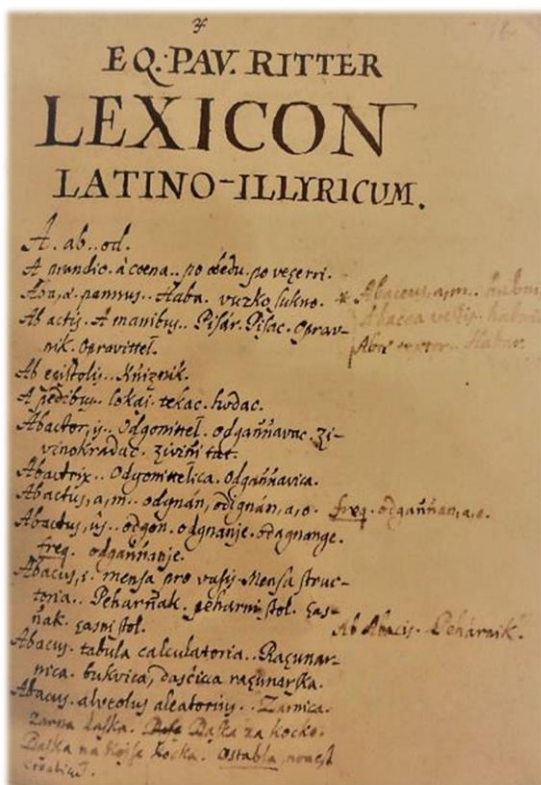 EQ. PAV. RITTER
LEXICON
LATINO-ILLYRICUM.
A. ab.. od.
A prandio. à coena.. po obedu. po veçerri.
Aba, æ. pannus.. Haba. vuzko sukno. * Abaceus, a, m..
Ab actis. A manibus.. Pisár. Pisac. Oprav-
nik. Opravittel.
Ab epistolis.. Knixnik.
A pedibus.. lokaj. tekac. hodac.
Abactor, is.. Odgonittel. odgańńavac. xi-
vinokradac. xivini tat.
Abactrix.. Odgonittelica. odgańńavica.
Abactus, a, m.. odgnán, odignán, a, o. freq. odgańńan, a, o.
Abactus, ûs.. odgon. odgnanje. odagnange.
freq. odgańńanje.
Abacus, i. mensa pro vasis. Mensa struc-
toria.. Peharńak. peharni stol. ças-
ńak. çasni stol. Ab Abacis. Pehárnik.
Abacus. tabula calculatoria.. Raçunar-
nica. bukvica, dasćica raçunarska.
Abacus. alveolus aleatorius.. Zarnica.
Zarna daska. Daska za kocke.
Daska na kojse kocka.